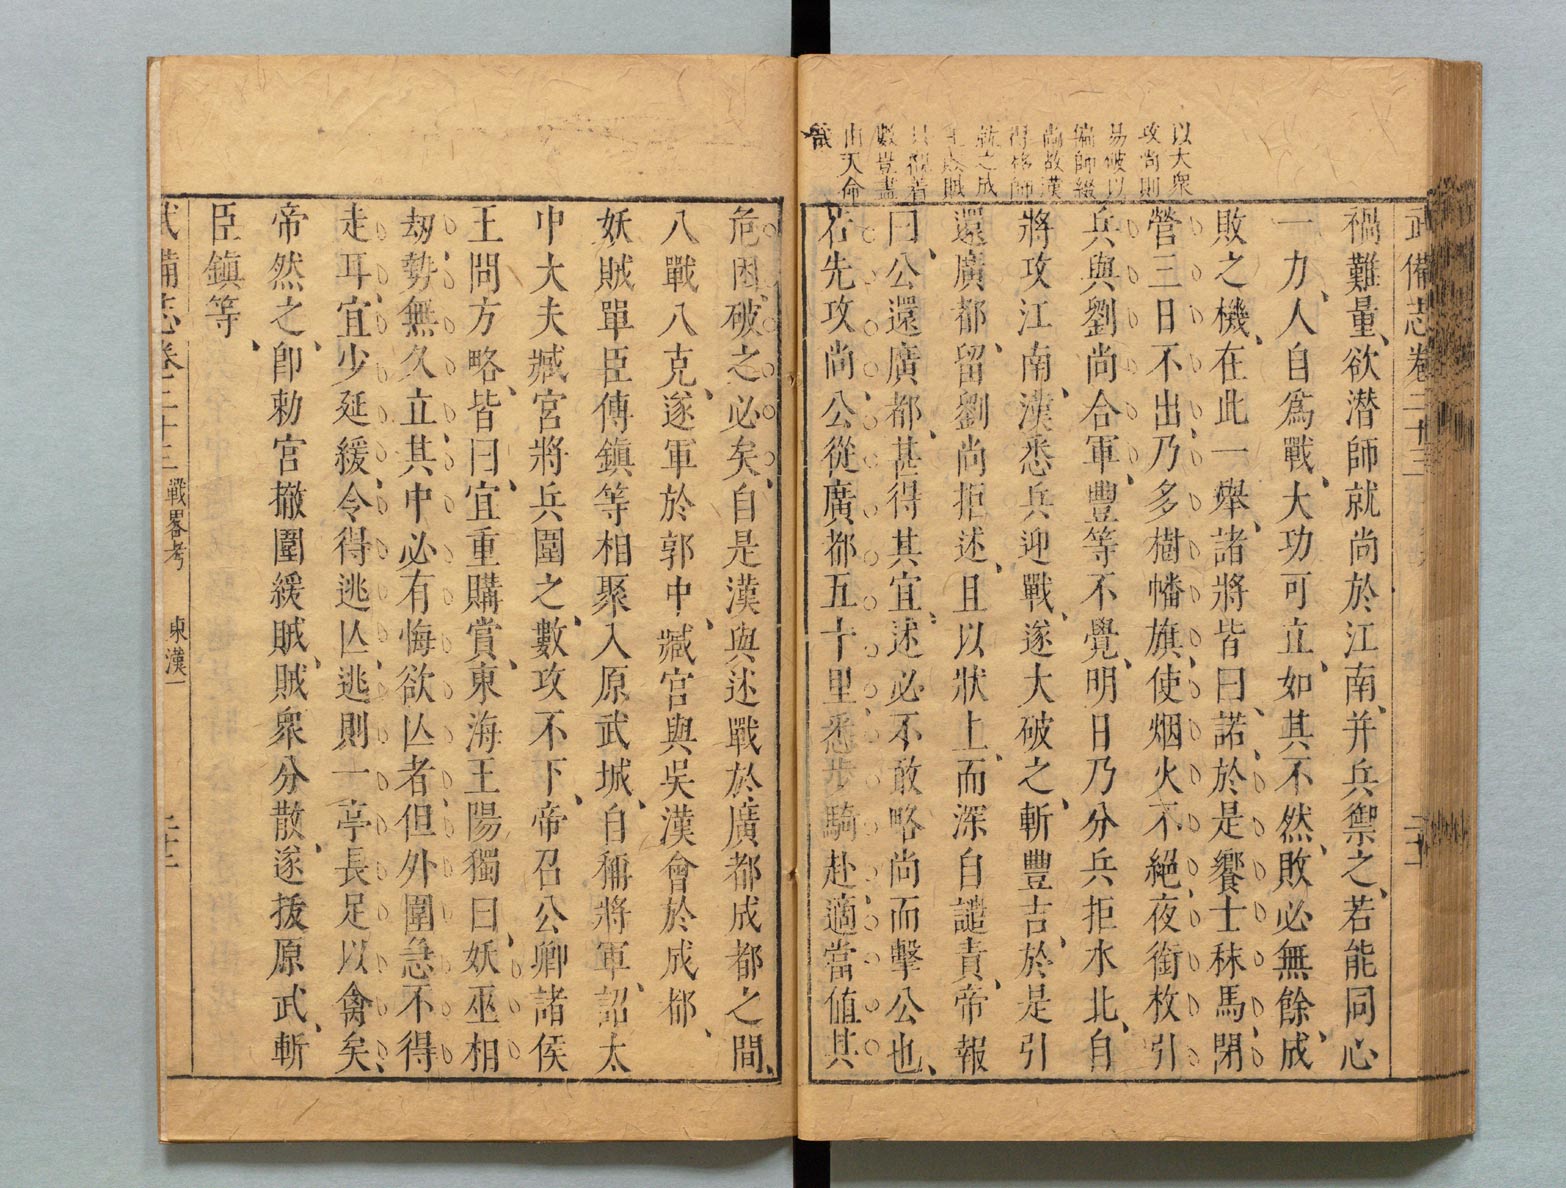 武備志卷二十三
以大衆
攻尚則
易破以
偏師綴
尚故漢
得移師
就之成
數豈盡
由天命
哉
禍難量、欲潛師就尚於江南、并兵禦之、若能同心
一力、人自爲戰、大功可立、如其不然、敗必無餘、成
敗之機、在此一舉、諸將皆曰、諾、於是饗士秣馬、閉
營三日不出、乃多樹幡旗、使烟火不絕、夜銜枚引
兵與劉尚合軍、豐等不覺、明日乃分兵拒水北、自
將攻江南、漢悉兵迎戰、遂大破之、斬豐吉、於是引
還廣都、留劉尚拒述、且以狀上、而深自譴責、帝報
曰、公還廣都、甚得其宜、述必不敢略尚而擊公也、
若先攻尚、公從廣都五十里悉步騎赴適當值其
危困、破之必矣、自是漢與述戰於廣都成都之間、
八戰八克、遂軍於郭中、臧宮與吳漢會於成都、
妖賊單臣傅鎮等相聚入原武城、自稱將軍、詔太
中大夫臧宮將兵圍之、數攻不下、帝召公卿諸侯
王問方略、皆曰、宜重購賞、東海王陽獨曰、妖巫相
劫、勢無久立、其中必有悔欲亾者、但外圍急不得
走耳、宜少延緩、令得逃亾、逃則一亭長足以禽矣、
帝然之、卽勅宮撤圍緩賊、賊衆分散、遂拔原武、斬
臣鎮等、
武備志卷二十三 戰畧考 東漢一